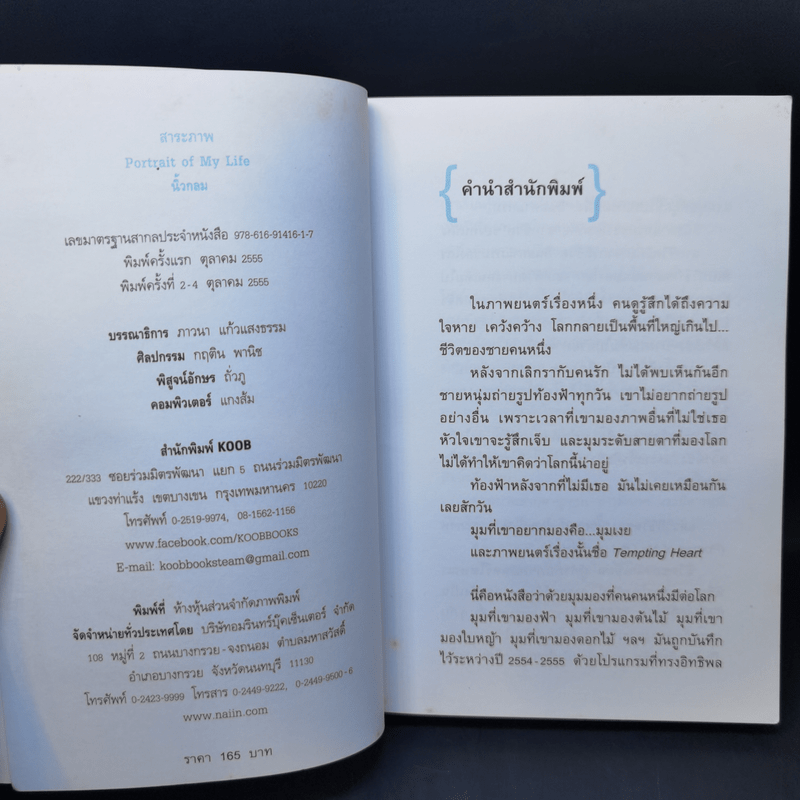 สาระภาพ
Portrait of My Life
นิ้วกลม
เลขมาตรฐานสากลประจำหนังสือ 978-616-91416-1-7
พิมพ์ครั้งแรก ตุลาคม 2555
พิมพ์ครั้งที่ 2-4 ตุลาคม 2555
บรรณาธิการ ภาวนา แก้วแสงธรรม
ศิลปกรรม กฤติน พานิช
พิสูจน์อักษร ถั่วภู
คอมพิวเตอร์ แกงส้ม
สำนักพิมพ์ KOOB
222/333 ซอยร่วมมิตรพัฒนา แยก 5 ถนนร่วมมิตรพัฒนา
แขวงท่าแร้ง เขตบางเขน กรุงเทพมหานคร 10220
โทรศัพท์ 0-2519-9974, 08-1562-1156
www.facebook.com/KOOBBOOKS
E-mail: koobbooksteam@gmail.com
พิมพ์ที่ ห้างหุ้นส่วนจำกัดภาพพิมพ์
จัดจำหน่ายทั่วประเทศโดย บริษัทอมรินทร์บุ๊คเซ็นเตอร์ จำกัด
108 หมู่ที่ 2 ถนนบางกรวย-จงถนอม ตำบลมหาสวัสดิ์
อำเภอบางกรวย จังหวัดนนทบุรี 11130
โทรศัพท์ 0-2423-9999 โทรสาร 0-2449-9222, 0-2449-9500-6
www.naiin.com
ราคา 165 บาท
{คำนำสำนักพิมพ์}
ในภาพยนตร์เรื่องหนึ่ง คนดูรู้สึกได้ถึงความ
ใจหาย เคว้งคว้าง โลกกลายเป็นพื้นที่ใหญ่เกินไป...
ชีวิตของชายคนหนึ่ง
หลังจากเลิกรากับคนรัก ไม่ได้พบเห็นกันอีก
ชายหนุ่มถ่ายรูปท้องฟ้าทุกวัน เขาไม่อยากถ่ายรูป
อย่างอื่น เพราะเวลาที่เขามองภาพอื่นที่ไม่ใช่เธอ
หัวใจเขาจะรู้สึกเจ็บ และมุมระดับสายตาที่มองโลก
ไม่ได้ทำให้เขาคิดว่าโลกนี้น่าอยู่
ท้องฟ้าหลังจากที่ไม่มีเธอ มันไม่เคยเหมือนกัน
เลยสักวัน
มุมที่เขาอยากมองคือ...มุมเงย
และภาพยนตร์เรื่องนั้นชื่อ Tempting Heart
นี่คือหนังสือว่าด้วยมุมมองที่คนคนหนึ่งมีต่อโลก
มุมที่เขามองฟ้า มุมที่เขามองต้นไม้ มุมที่เขา
มองใบหญ้า มุมที่เขามองดอกไม้ ฯลฯ มันถูกบันทึก
ไว้ระหว่างปี 2554-2555 ด้วยโปรแกรมที่ทรงอิทธิพล